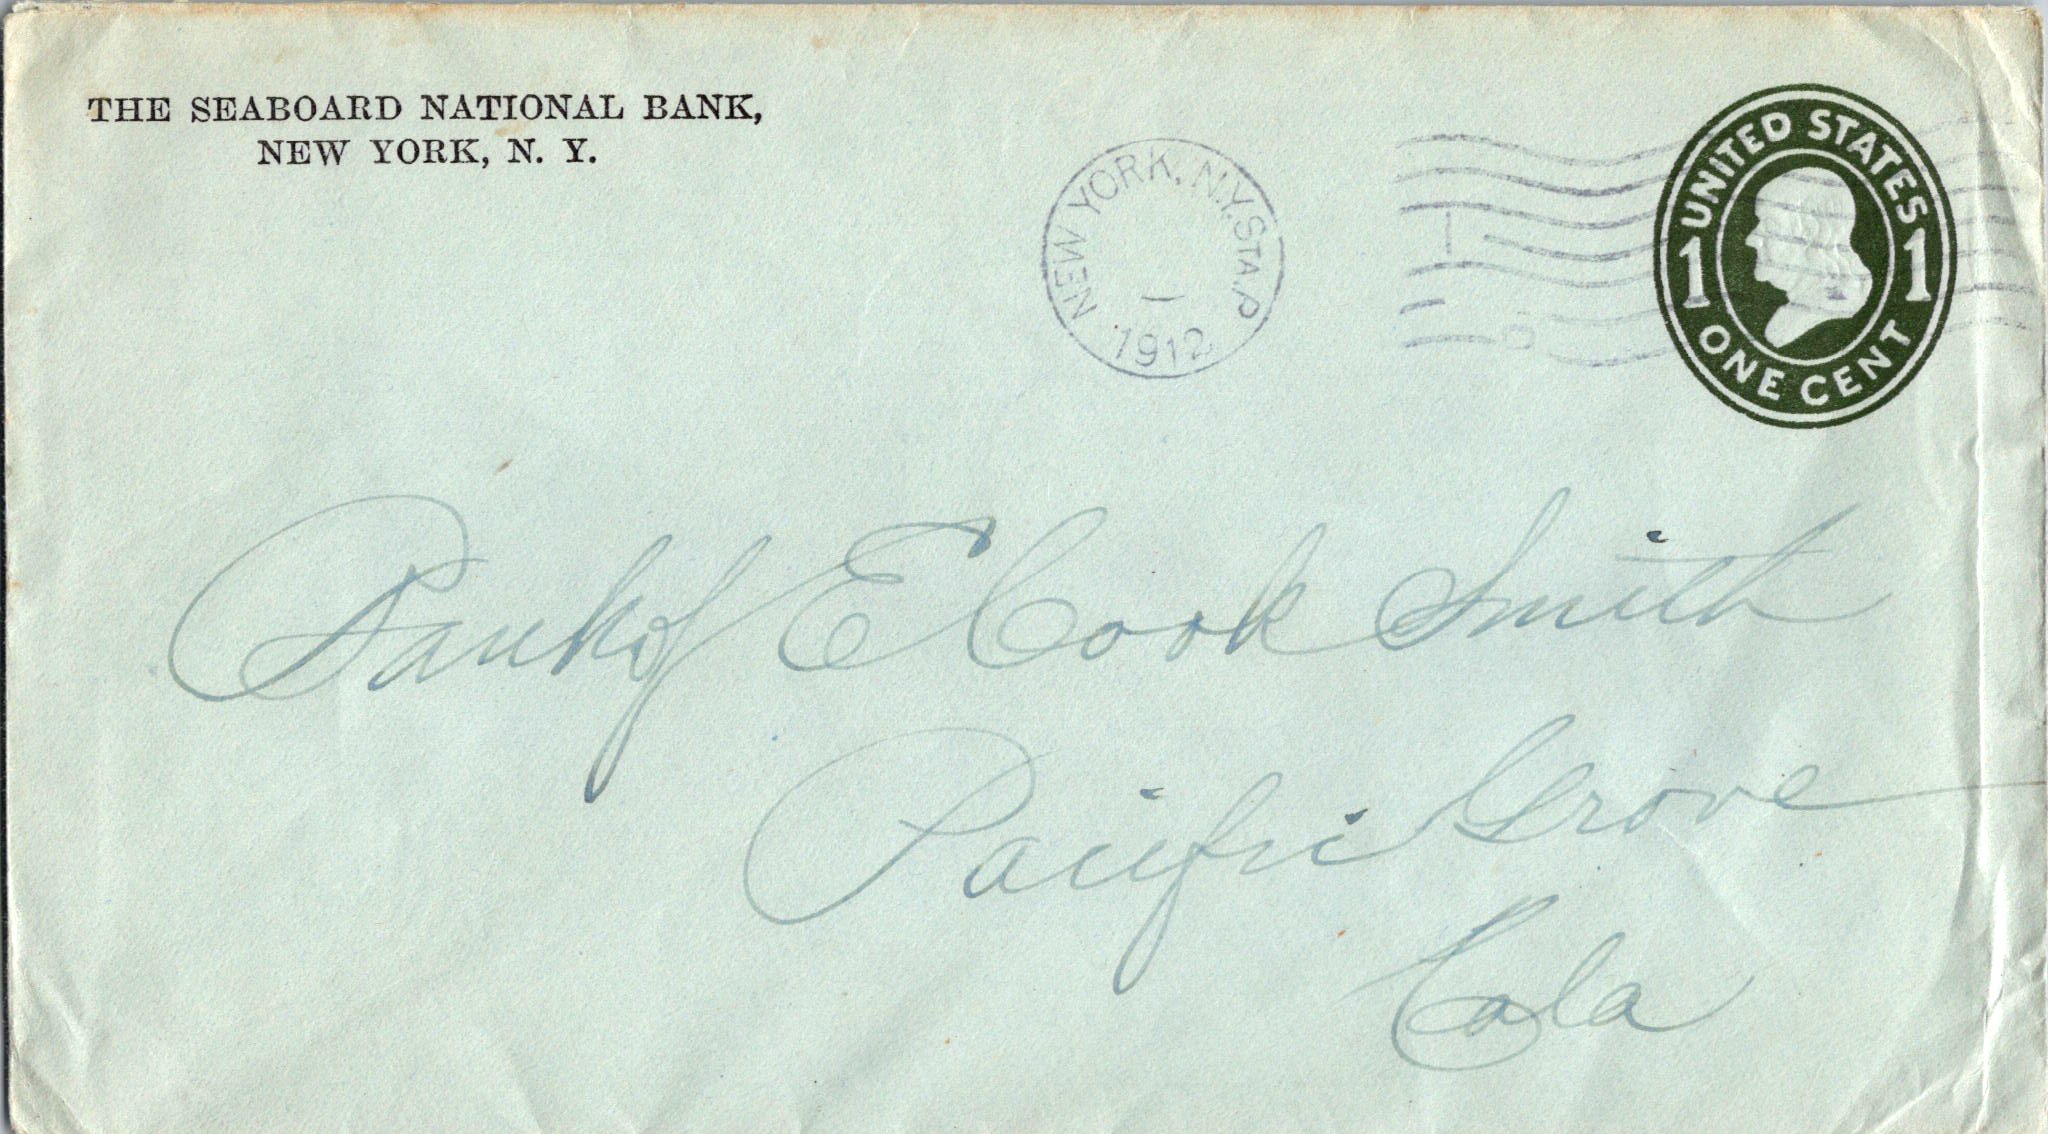 THE SEABOARD NATIONAL BANK,
NEW YORK, N. Y.
NEW YORK, N.Y. STA. P
1912
UNITED STATES
1 1
ONE CENT
Bank of E Cook Smith
Pacific Grove
Cala